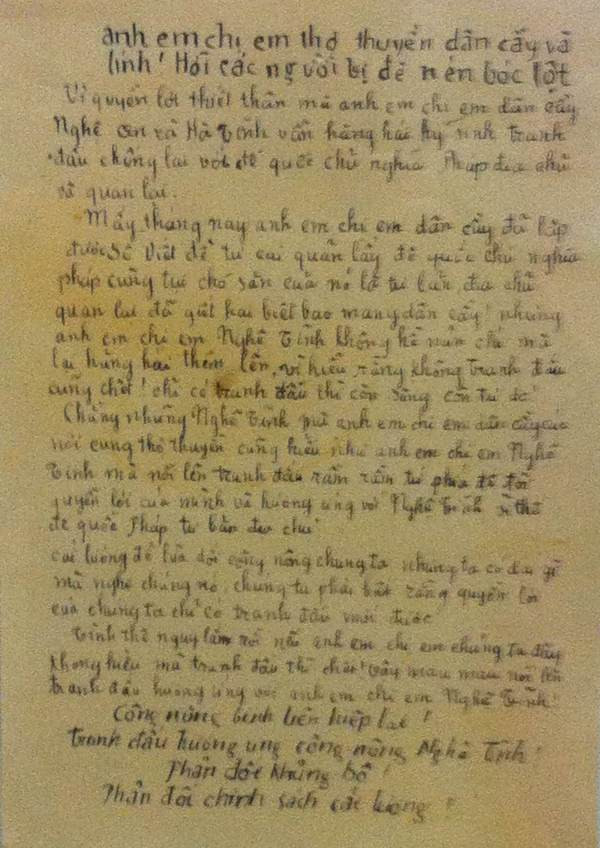 anh em chị em thợ thuyền dân cầy và
lính! Hỡi các người bị đè nén bóc lột
Vì quyền lợi thiết thân mà anh em chị em dân cầy
Nghệ An và Hà Tĩnh vẫn hăng hái hy sinh tranh
đấu chống lại với đế quốc chủ nghĩa Pháp địa chủ
và quan lại.
Mấy tháng nay anh em chị em dân cầy đã lập
được Sô Viết để tự cai quản lấy đế quốc chủ nghĩa
pháp cùng tụi chó săn của nó là tư bản, địa chủ
quan lại đã giết hại biết bao mạng dân cầy! nhưng
anh em chị em Nghệ Tĩnh không hề nản chí mà
lại hăng hái thêm lên, vì hiểu rằng không tranh đấu
cũng chết! chỉ có tranh đấu thì còn sống còn tự do!
Chẳng những Nghệ Tĩnh mà anh em chị em dân cầy các
nơi cùng thợ thuyền cũng hiểu như anh em chị em Nghệ
Tĩnh mà nổi lên tranh đấu rầm rầm tứ phía để đòi
quyền lợi của mình và hưởng ứng với Nghệ Tĩnh vì thế
đế quốc Pháp tư bản địa chủ
cải lương để lừa dối công nông chúng ta nhưng ta có dại gì
mà nghe chúng nó, chúng ta phải biết rằng quyền lợi
của chúng ta chỉ có tranh đấu mới được
Tình thế nguy lắm rồi nếu anh em chị em chúng ta đây
không hiểu mà tranh đấu thì chết! Vậy mau mau nổi lên
tranh đấu hưởng ứng với anh em chị em Nghệ Tĩnh!
Công nông binh liên hiệp lại!
Tranh đấu hưởng ứng công nông Nghệ Tĩnh!
Phản đối khủng bố!
Phản đối chính sách cải lương!